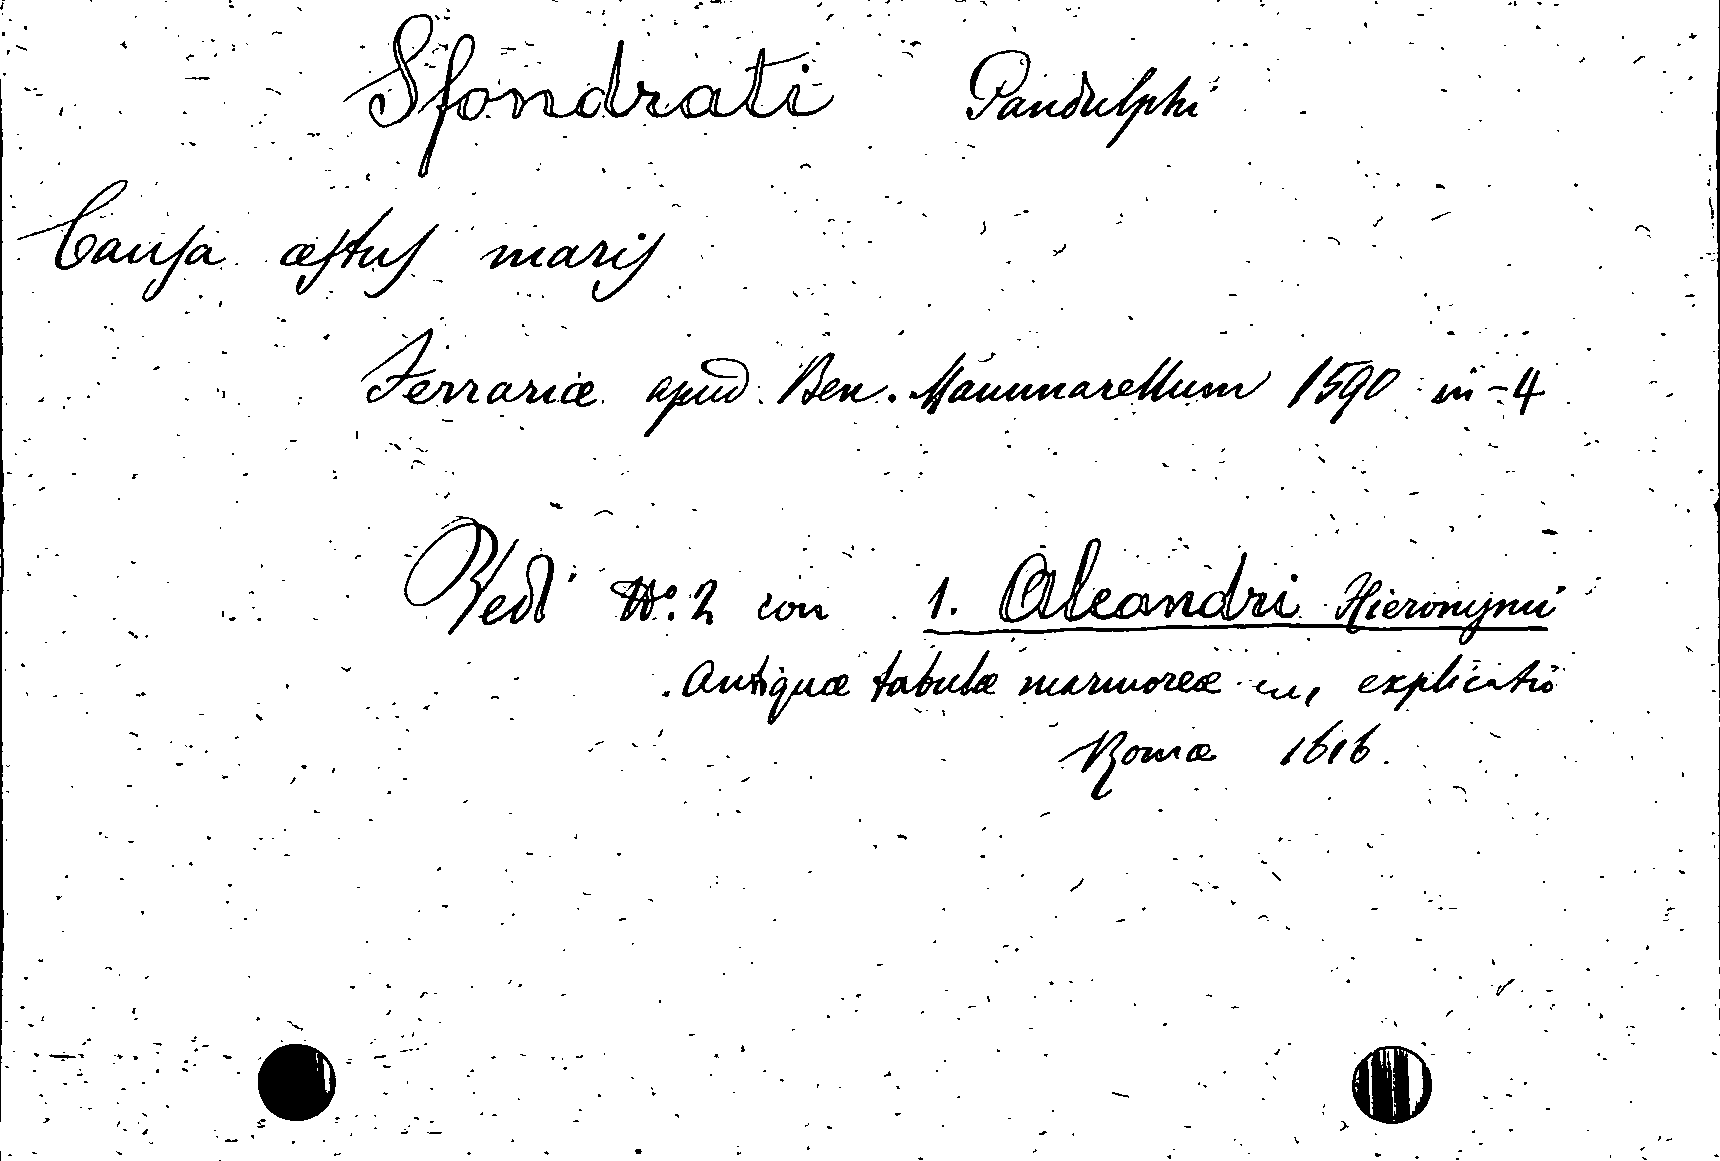 Sfondrati Pandulphi
Causa æstus maris
Ferrariæ apud Ben. Mammarellum 1590 in-4
Vedi No. 2 con 1. Aleandri Hieronymi
Antiquæ tabulæ marmoreæ explicatio
Romæ 1616.